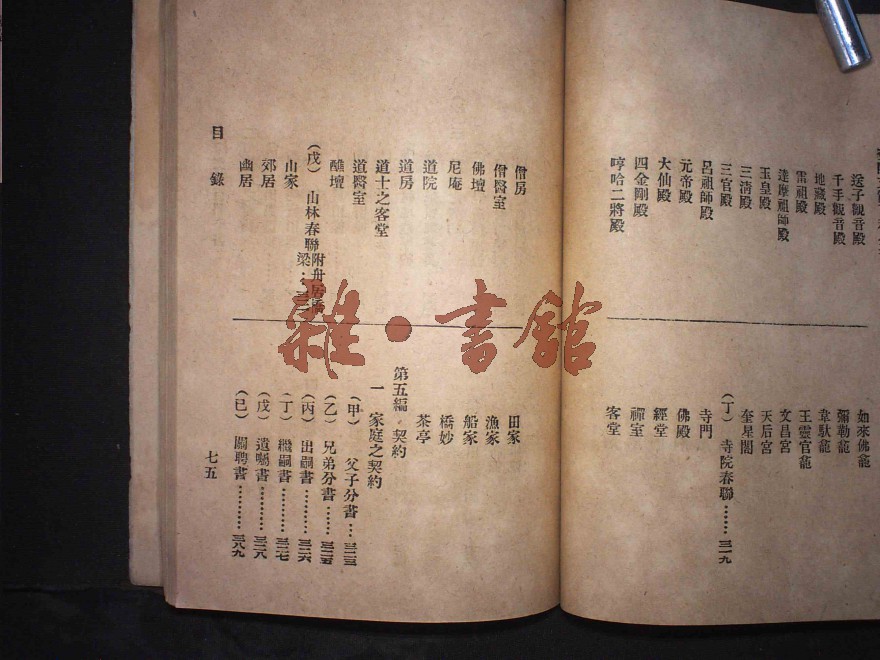 送子觀音殿
千手觀音殿
地藏殿
雷祖殿
達摩祖師殿
玉皇殿
三清殿
三官殿
呂祖師殿
元帝殿
大仙殿
四金剛殿
哼哈二將殿
如來佛龕
彌勒龕
韋馱龕
王靈官龕
文昌宮
天后宮
奎星閣
(丁) 寺院春聯……三一九
寺門
佛殿
經堂
禪室
客堂
僧房
僧醫室
佛壇
尼庵
道院
道房
道士之客堂
道醫室
醮壇
(戊) 山林春聯附舟居橋梁
山家
郊居
幽居
田家
漁家
船家
橋妙
茶亭
第五編 契約
一 家庭之契約
(甲) 父子分書…三二三
(乙) 兄弟分書……三二五
(丙) 出嗣書………三二六
(丁) 繼嗣書………三二七
(戊) 遺囑書………三二八
(已) 關聘書………三八九
目錄
七五
雜·書館